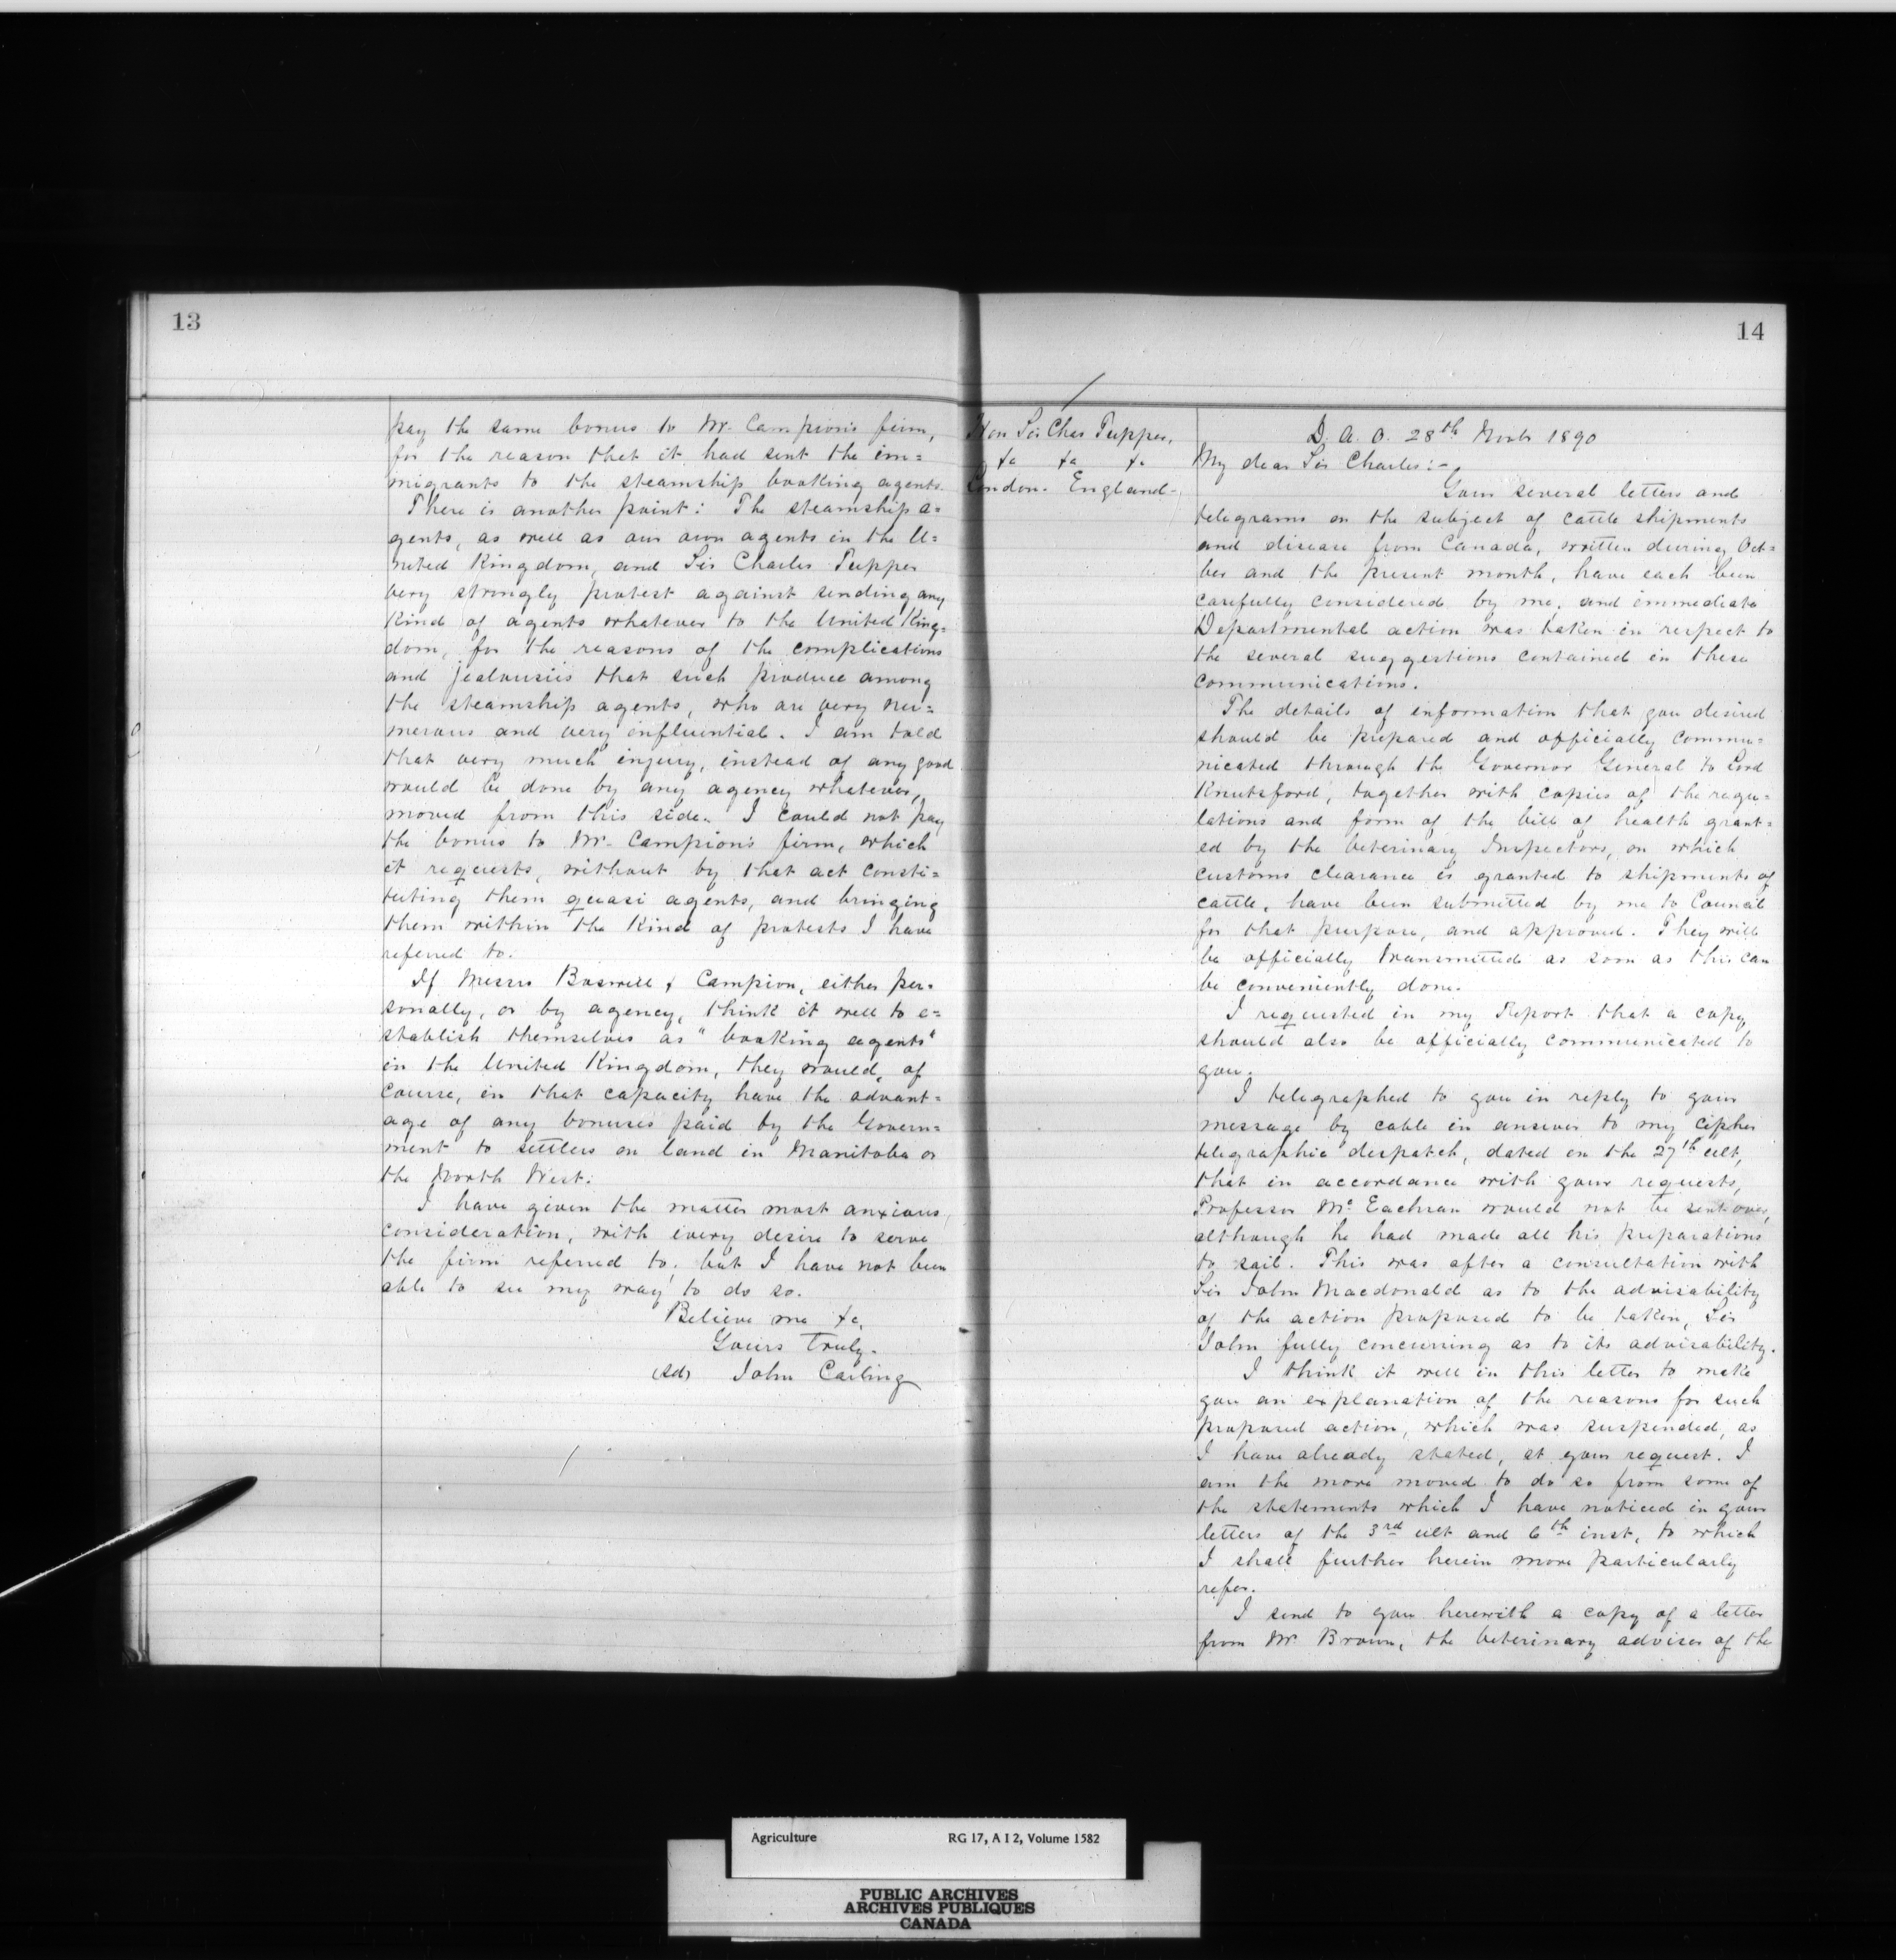 13
pay the same bonus to Mr. Campion's firm,
for the reason that it had sent the im=
migrants to the steamship booking agents.
There is another point: The steamship a=
gents, as well as our own agents in the U=
nited Kingdom, and Sir Charles Tupper
very strongly protest against sending any
kind of agents whatever to the United King=
dom, for the reasons of the complications
and jealousies that such produce among
the steamship agents, who are very nu=
merous and very influential. I am told
that very much injury, instead of any good
would be done by any agency whatever,
moved from this side. I could not pay
the bonus to Mr. Campion's firm, which
it requests, without by that act consti=
tuting them quasi agents, and bringing
them within the kind of protests I have
referred to.
If Messrs Boswell & Campion, either per=
sonally, or by agency, think it well to e=
stablish themselves as "booking agents"
in the United Kingdom, they would, of
course, in that capacity have the advant=
age of any bonuses paid by the Govern=
ment to settlers on land in Manitoba or
the North West.
I have given the matter most anxious
consideration, with every desire to serve
the firm referred to; but I have not been
able to see my way to do so.
Believe me &c,
Yours Truly.
(Sd) John Carling
14
Hon Sir Chas Tupper,
&c &c &c
London. England.
D. A. O. 28th Novbr 1890
My dear Sir Charles:-
Your several letters and
telegrams on the subject of cattle shipments
and disease from Canada, written during Oct=
ber and the present month, have each been
carefully considered by me, and immediate
Departmental action was taken in respect to
the several suggestions contained in these
communications.
The details of information that you desired
should be prepared and officially commu=
nicated through the Governor General to Lord
Knutsford, together with copies of the regu=
lations and form of the bill of health grant=
ed by the Veterinary Inspectors, on which
customs clearance is granted to shipments of
cattle, have been submitted by me to Council
for that purpose, and approved. They will
be officially transmitted as soon as this can
be conveniently done.
I requested in my Report that a copy
should also be officially communicated to
you.
I telegraphed to you in reply to your
message by cable in answer to my cipher
telegraphic despatch, dated on the 27th ult,
that in accordance with your requests,
Professor McEachran would not be sent over,
although he had made all his preparations
to sail. This was after a consultation with
Sir John Macdonald as to the advisability
of the action proposed to be taken, Sir
John fully concurring as to its advisability.
I think it well in this letter to make
you an explanation of the reasons for such
proposed action, which was suspended, as
I have already stated, at your request. I
am the more moved to do so from some of
the statements which I have noticed in your
letters of the 3rd ult and 6th inst, to which
I shall further herein more particularly
refer.
I send to you herewith a copy of a letter
from Mr Brown, the Veterinary adviser of the
Agriculture RG 17, A I 2, Volume 1582
PUBLIC ARCHIVES
ARCHIVES PUBLIQUES
CANADA